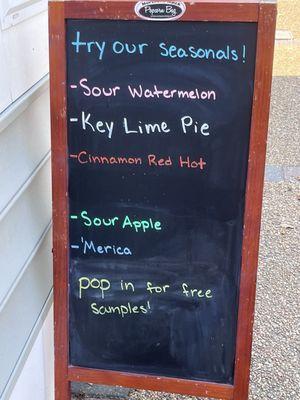 Popcorn Bag
try our seasonals!
-Sour Watermelon
-Key Lime Pie
-Cinnamon Red Hot
-Sour Apple
-'Merica
pop in for free
samples!